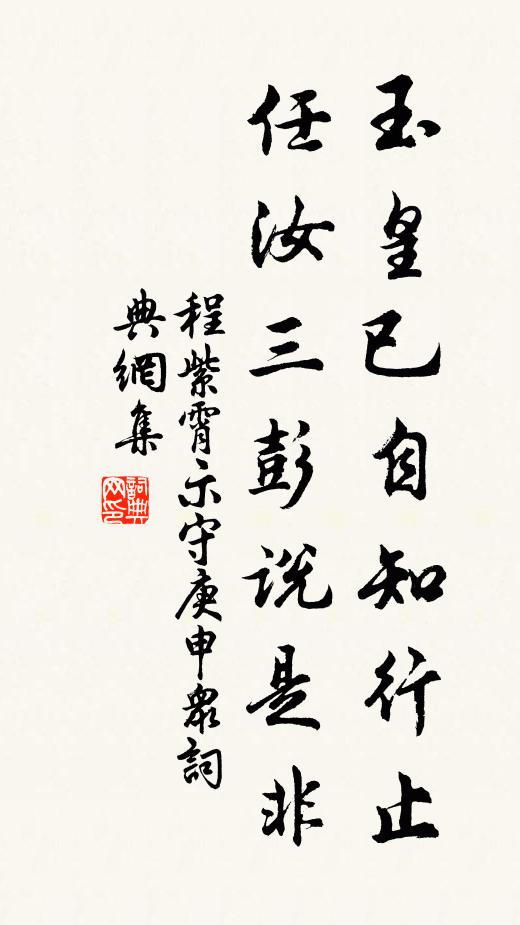 玉皇已自知行止
任汝三彭说是非
程紫霄示守庚申眾詞
典網集
詞典
网印